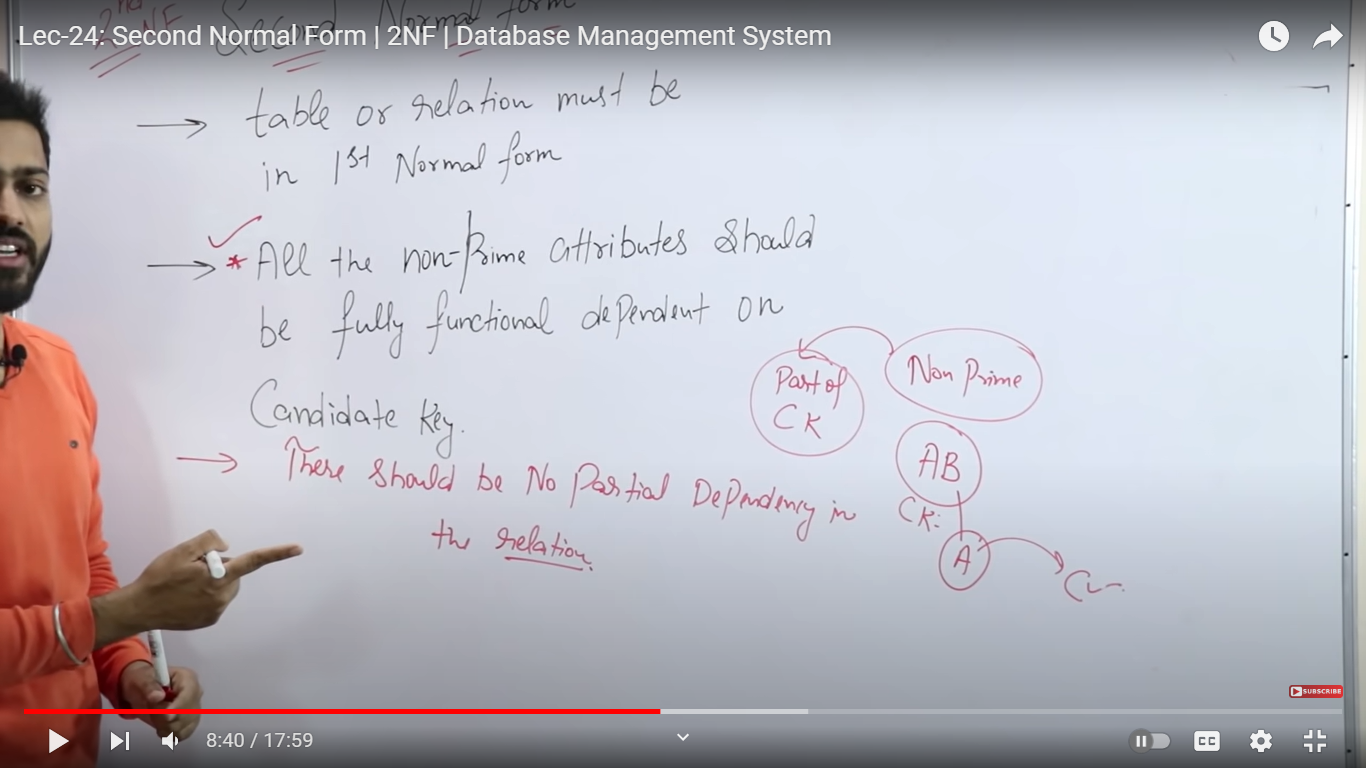 Lec-24: Second Normal Form | 2NF | Database Management System
2nd NF Second Normal form
→ table or relation must be
in 1st Normal form
→ * All the non-Prime attributes should
be fully functional dependent on
Candidate key.
Part of
CK
Non Prime
AB
CK:
A
→ There should be No Partial Dependency in
the relation.
SUBSCRIBE
8:40 / 17:59
CC